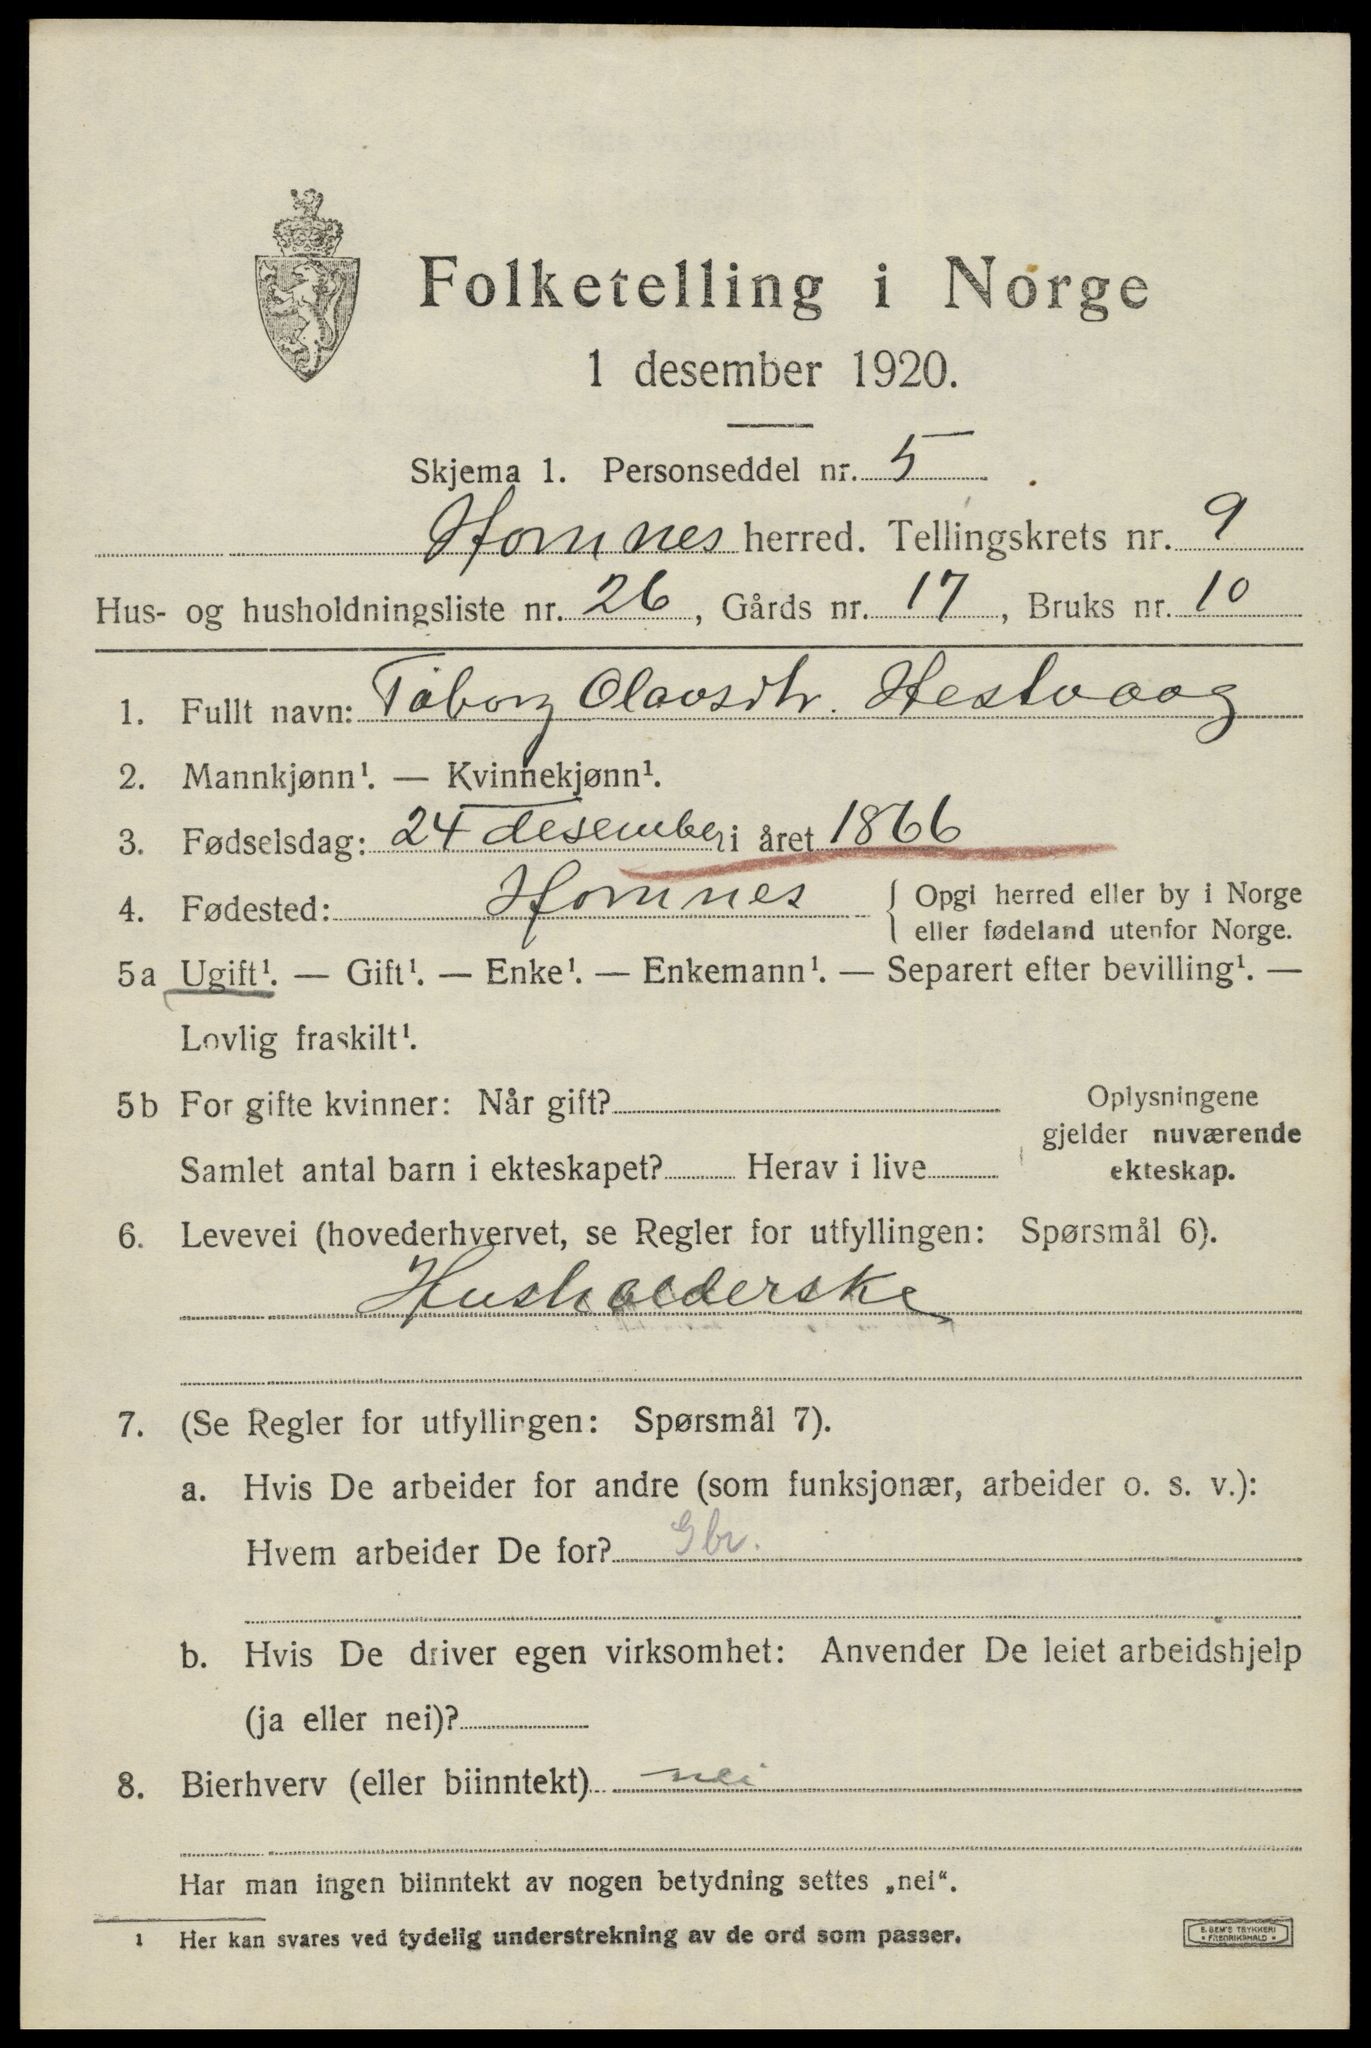 Folketelling i Norge
1 desember 1920.
Skjema 1. Personseddel nr. 5
Hornnes herred. Tellingskrets nr. 9
Hus- og husholdningsliste nr. 26, Gårds nr. 17, Bruks nr. 10
1. Fullt navn: Taborg Olavsdtr. Hestvaag
2. Mannkjønn¹. — Kvinnekjønn¹.
3. Fødselsdag: 24 desember i året 1866
4. Fødested: Hornnes { Opgi herred eller by i Norge
eller fødeland utenfor Norge.
5a Ugift¹. — Gift¹. — Enke¹. — Enkemann¹. — Separert efter bevilling¹. —
Lovlig fraskilt¹.
5b For gifte kvinner: Når gift?
Samlet antal barn i ekteskapet? Herav i live
Oplysningene
gjelder nuværende
ekteskap.
6. Levevei (hovederhvervet, se Regler for utfyllingen: Spørsmål 6).
Husholderske
7. (Se Regler for utfyllingen: Spørsmål 7).
a. Hvis De arbeider for andre (som funksjonær, arbeider o. s. v.):
Hvem arbeider De for? Gbr.
b. Hvis De driver egen virksomhet: Anvender De leiet arbeidshjelp
(ja eller nei)?
8. Bierhverv (eller biinntekt) nei
Har man ingen biinntekt av nogen betydning settes „nei“.
1 Her kan svares ved tydelig understrekning av de ord som passer.
E. SEM'S TRYKKERI
• FREDRIKSHALD •